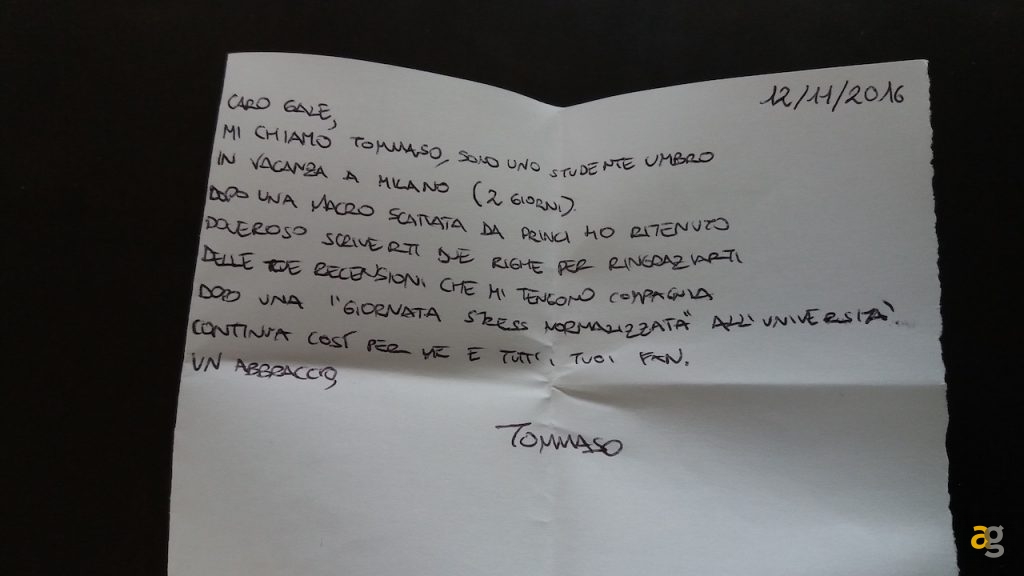 12/11/2016
CARO GALE,
MI CHIAMO TOMMASO, SONO UNO STUDENTE UMBRO
IN VACANZA A MILANO (2 GIORNI).
DOPO UNA MACRO SCATTATA DA PRINCI HO RITENUTO
DOVEROSO SCRIVERTI DUE RIGHE PER RINGRAZIARTI
DELLE TUE RECENSIONI CHE MI TENGONO COMPAGNIA
DOPO UNA "GIORNATA STRESS NORMALIZZATA" ALL'UNIVERSITÀ.
CONTINUA COSÍ PER ME E TUTTI I TUOI FAN.
UN ABBRACCIO,
TOMMASO
ag